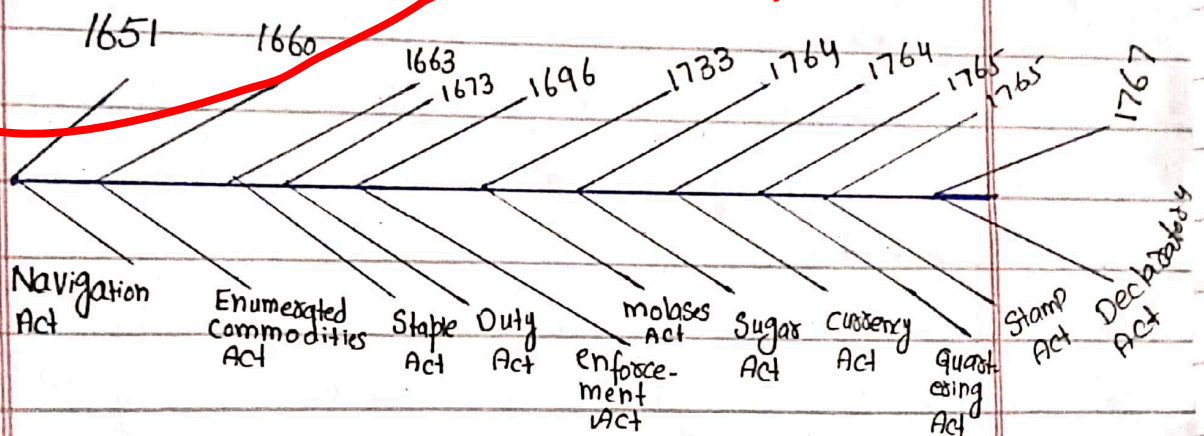 1651
1660
1663
1673
1696
1733
1764
1764
1765
1765
1767
Navigation
Act
Enumerated
Commodities
Act
Staple
Act
Duty
Act
enforce-
ment
Act
molases
Act
Sugar
Act
Currency
Act
Quart-
ering
Act
Stamp
Act
Declaratory
Act